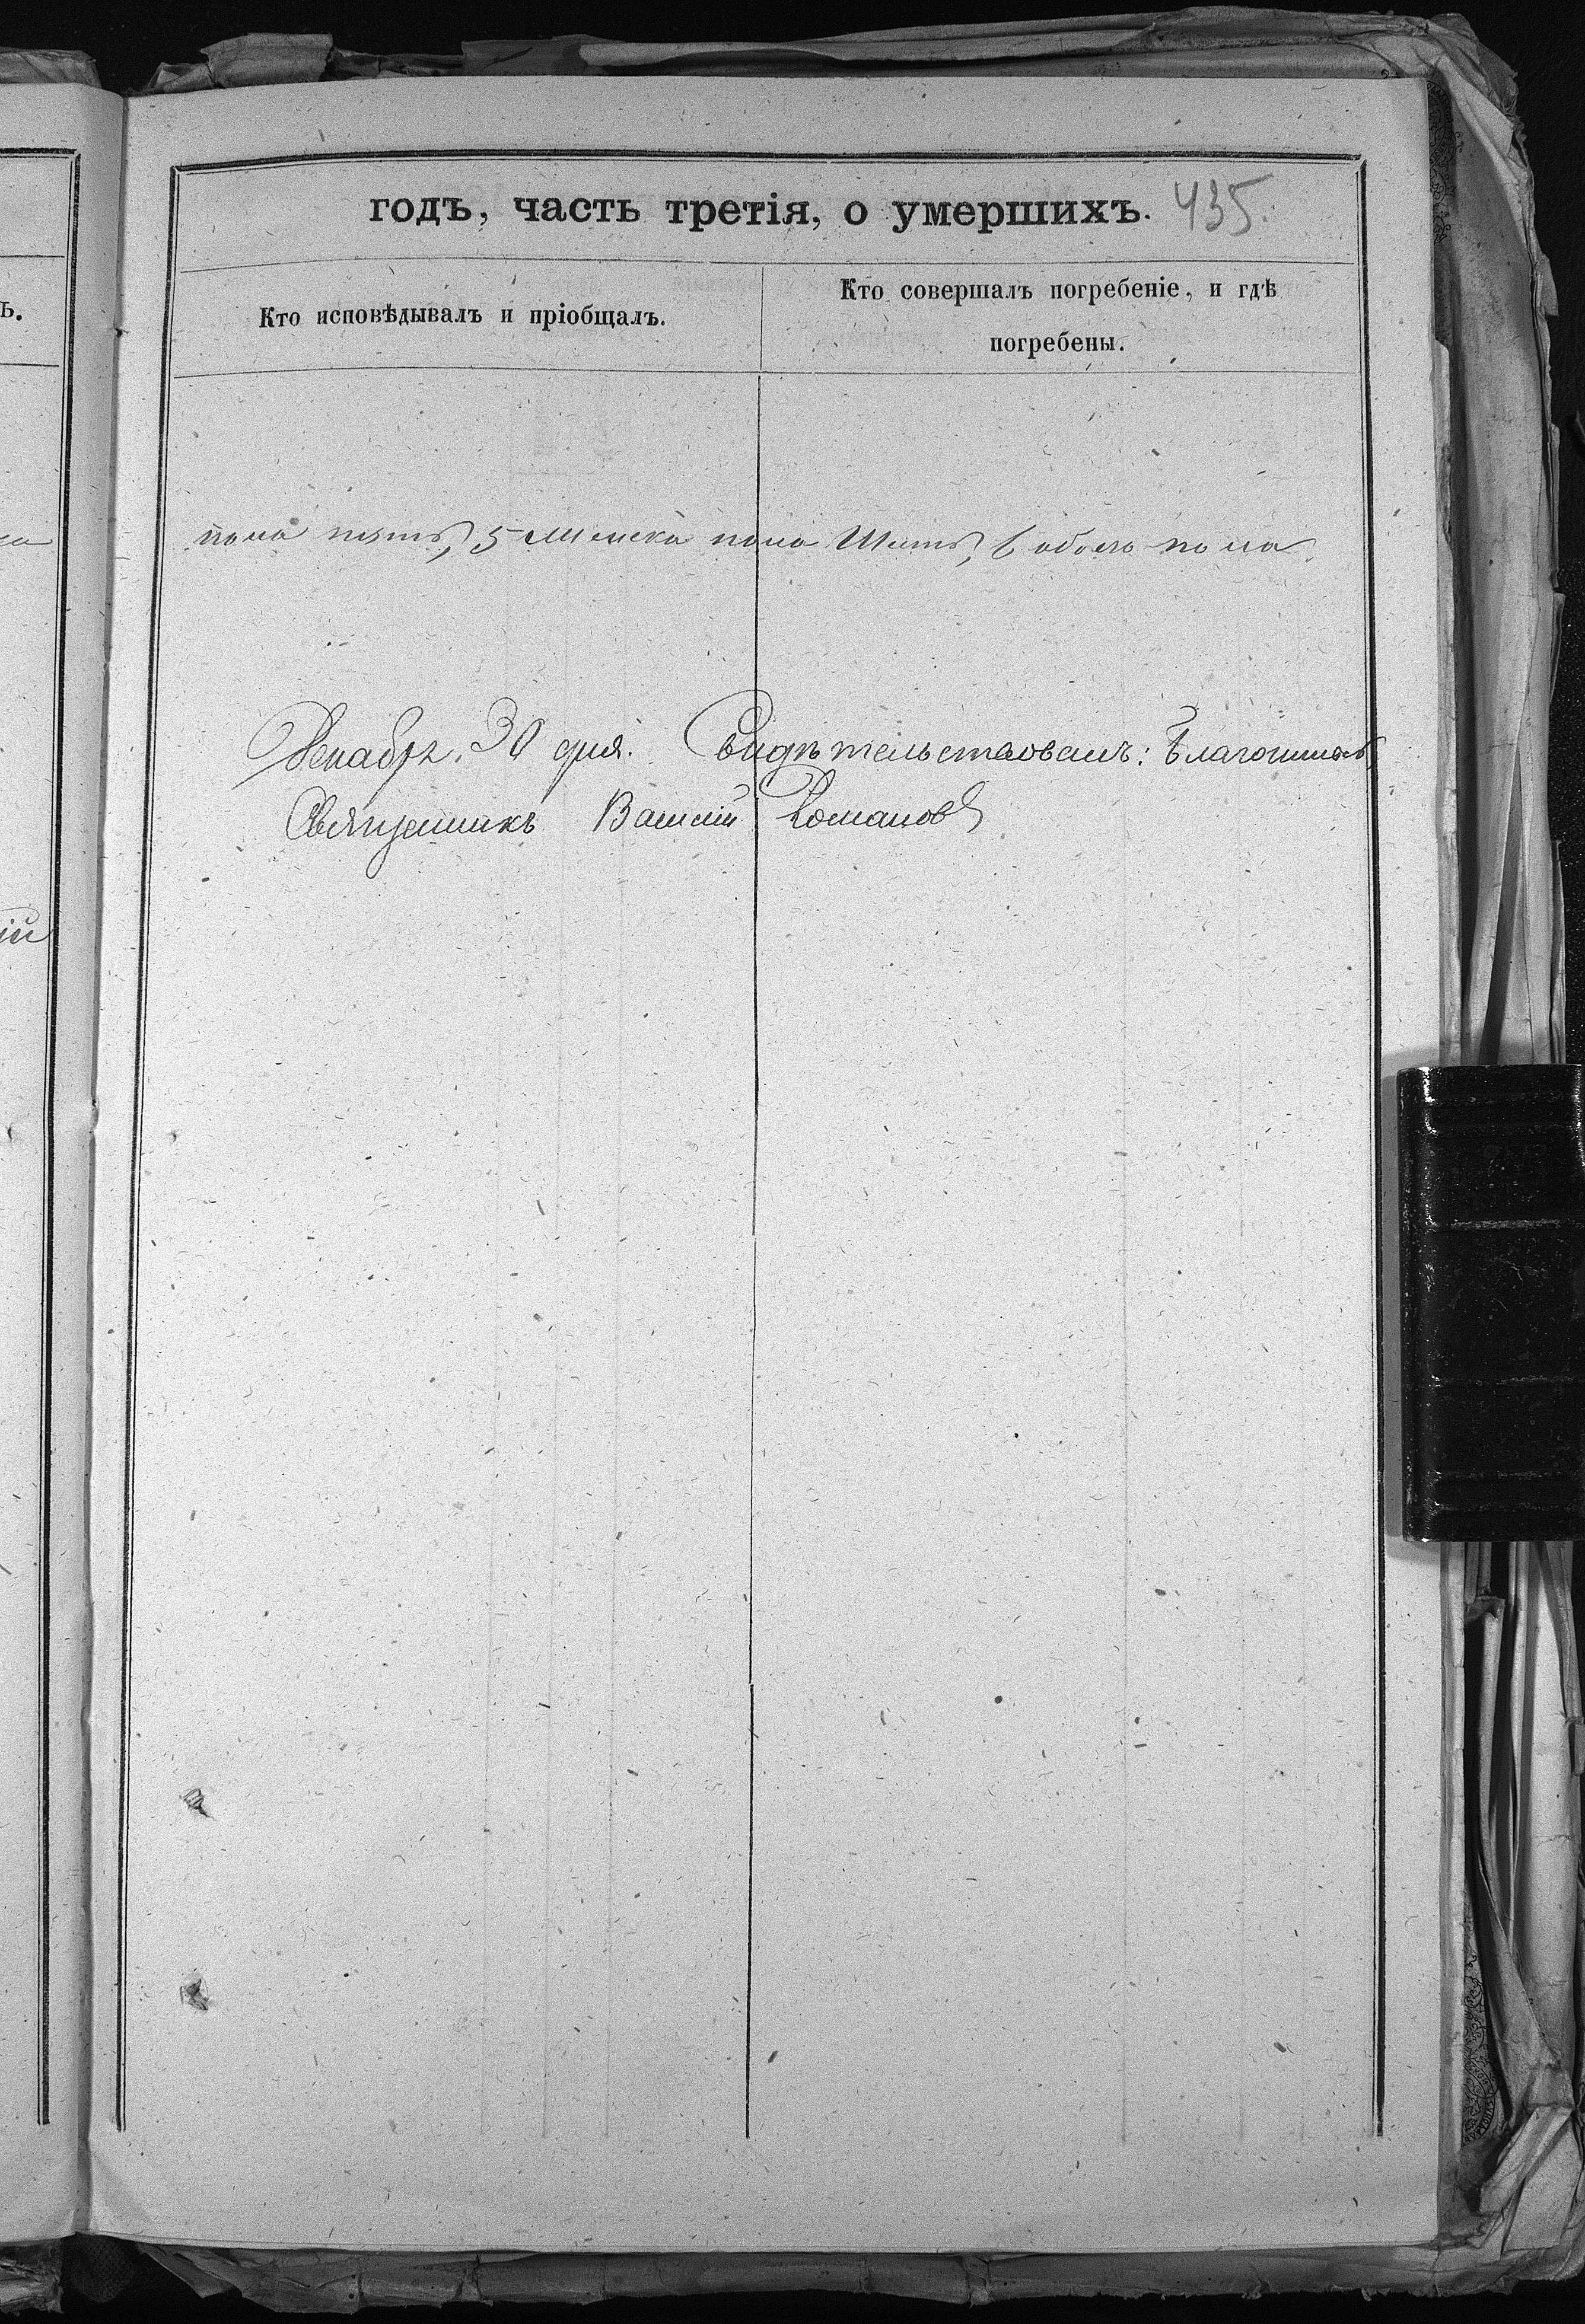 годъ, часть третія, о умершихъ. 435.
Кто исповѣдывалъ и пріобщалъ.
Кто совершалъ погребеніе, и гдѣ
погребены.
пола пять, 5 Женска пола Шесть, 6 обоего пола
Декабря 30 дня. Свидѣтельствовалъ: Благочинный,
Священникъ Василій Романовъ
ъ.
ій